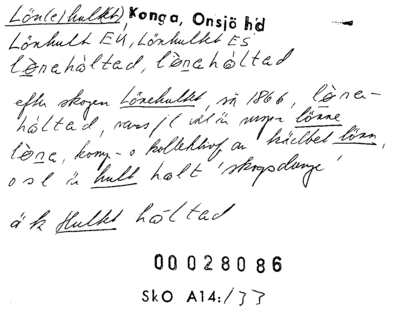 Lön(e)hultet, Konga, Onsjö hd
Lönhult EU, Lönhultet ES
lö̀nahåltad, lö̀nahåltad
efter skogen Lönehultet, så 1866, lö̀na-
håltad, vars fl väl är urspr lönne
lö̀na, komp- o kollektivf av trädbet lönn,
o sl är hult halt 'skogsdunge'
äk Hultet håltad
00028086
SkO A14:/33